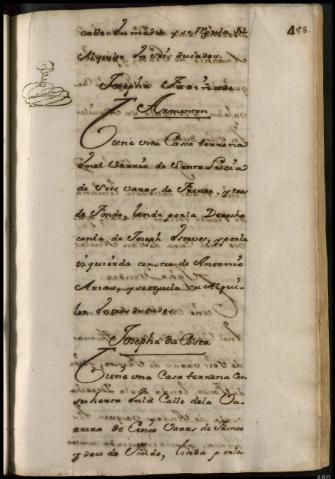 458.
calle en medio, y se
Alquila en seis ducados.
Josepha Fariña de
Armenton
Tiene una Cassa terrena
en el Varrio de Santa Lucia
de Seis varas de frente, y tres
de fondo, linda por la Derecha
con la de Joseph Esteves, y por la
izquierda con otra de Antonio
Arias, y se regula su Alqui-
ler en tres ducados.
Josepha da Costa
Tiene una Casa terrena con
su huerta en la Calle de la Ca-
rrera de Cinco Varas de frente
y doce de fondo, linda por la